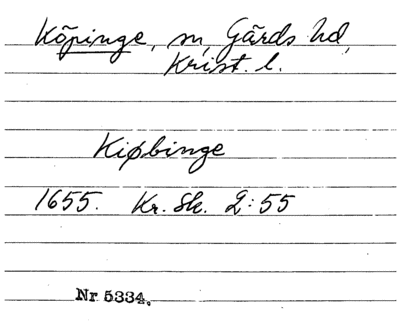 Köpinge, sn, Gärds hd,
Krist. l.
Kiøbinge
1655. Kr. Sk. 2:55
Nr 5334.